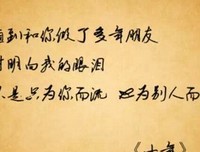 到和你做了多年朋友
明白我的眼泪
是只为你而流 也为别人而
《十年》